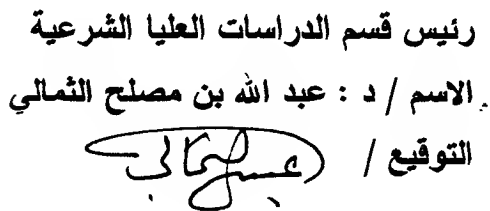 رئيس قسم الدراسات العليا الشرعية
الاسم / د : عبد الله بن مصلح الثمالي
التوقيع /